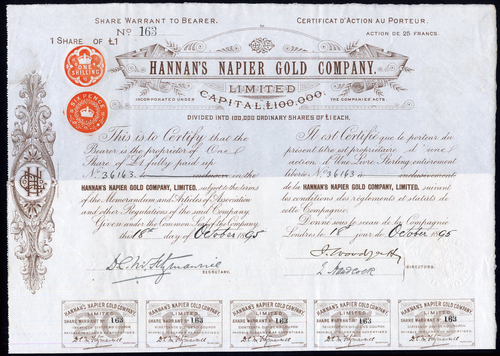 SHARE WARRANT TO BEARER.
CERTIFICAT D'ACTION AU PORTEUR.
No 163
1 SHARE OF £1
ACTION DE 25 FRANCS.
ONE SHILLING
HANNAN'S NAPIER GOLD COMPANY.
LIMITED
INCORPORATED UNDER THE COMPANIES ACTS.
CAPITAL, £100,000.
SIX PENCE
DIVIDED INTO 100,000 ORDINARY SHARES OF £1 EACH.
This is to Certify that the
Bearer is the proprietor of One
Share of £1 fully paid up
No 36163 inclusive in the
HANNAN'S NAPIER GOLD COMPANY, LIMITED, subject to the terms
of the Memorandum and Articles of Association
and other Regulations of the said Company.
Given under the Common Seal of the Company
this 18th day of October 1895
SECRETARY.
Il est Certifié que le porteur du
présent titre est propriétaire d'une
action d'Une Livre Sterling entièrement
libérée No 36163 inclusivement
de la HANNAN'S NAPIER GOLD COMPANY, LIMITED, suivant
les conditions des règlements et statuts de
cette Compagnie.
Donné sous le sceau de la Compagnie
Londres le 18 jour de October 1895
DIRECTORS.
HANNAN'S NAPIER GOLD COMPANY,
LIMITED
SHARE WARRANT No 163
HANNAN'S NAPIER GOLD COMPANY,
LIMITED
SHARE WARRANT No 163
HANNAN'S NAPIER GOLD COMPANY,
LIMITED
SHARE WARRANT No 163
HANNAN'S NAPIER GOLD COMPANY,
LIMITED
SHARE WARRANT No 163
HANNAN'S NAPIER GOLD COMPANY,
LIMITED
SHARE WARRANT No 163